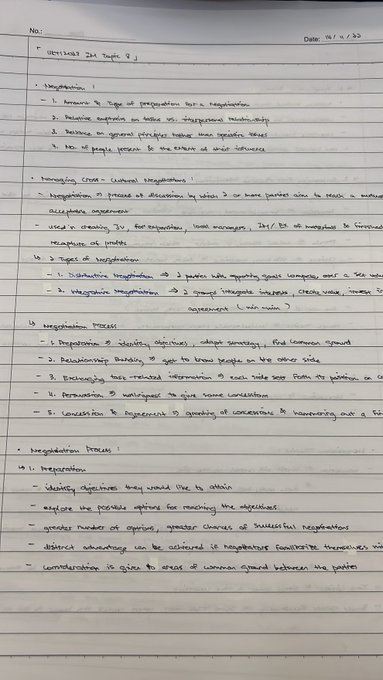 No.:
Date: 14 / 11 / 22
IM Topic 8 」
• Negotiation :
- 1. Amount & Type of preparation for a negotiation
2. Relative emphasis on tasks vs. interpersonal relationship
3. Reliance on general principles rather than specific issues
4. No. of people present & the extent of their influence
• Managing Cross - Cultural Negotiations :
- Negotiation => process of discussion by which 2 or more parties aim to reach a
acceptable agreement
- used in creating JV, for expansion, local managers, IM / EX of materials & finished
recapture of profits
↳ 2 Types of Negotiation
- 1. Distributive Negotiation => 2 parties with opposing goals compete over a set
- 2. Integrative Negotiation => 2 groups integrate interests, create value, invest
agreement ( win-win )
↳ Negotiation Process
- 1. Preparation => identify objectives, adapt strategy, find common ground
- 2. Relationship Building => get to know people on the other side
- 3. Exchanging task-related information => each side sets forth its position on
- 4. Persuasion => willingness to give some concessions
- 5. Concession & Agreement => granting of concessions & hammering out a
• Negotiation Process :
↳ 1. Preparation
- identify objectives they would like to attain
- explore the possible options for reaching the objectives
- greater number of options, greater chances of successful negotiations
- distinct advantage can be achieved if negotiators familiarize themselves
- consideration is given to areas of common ground between the parties